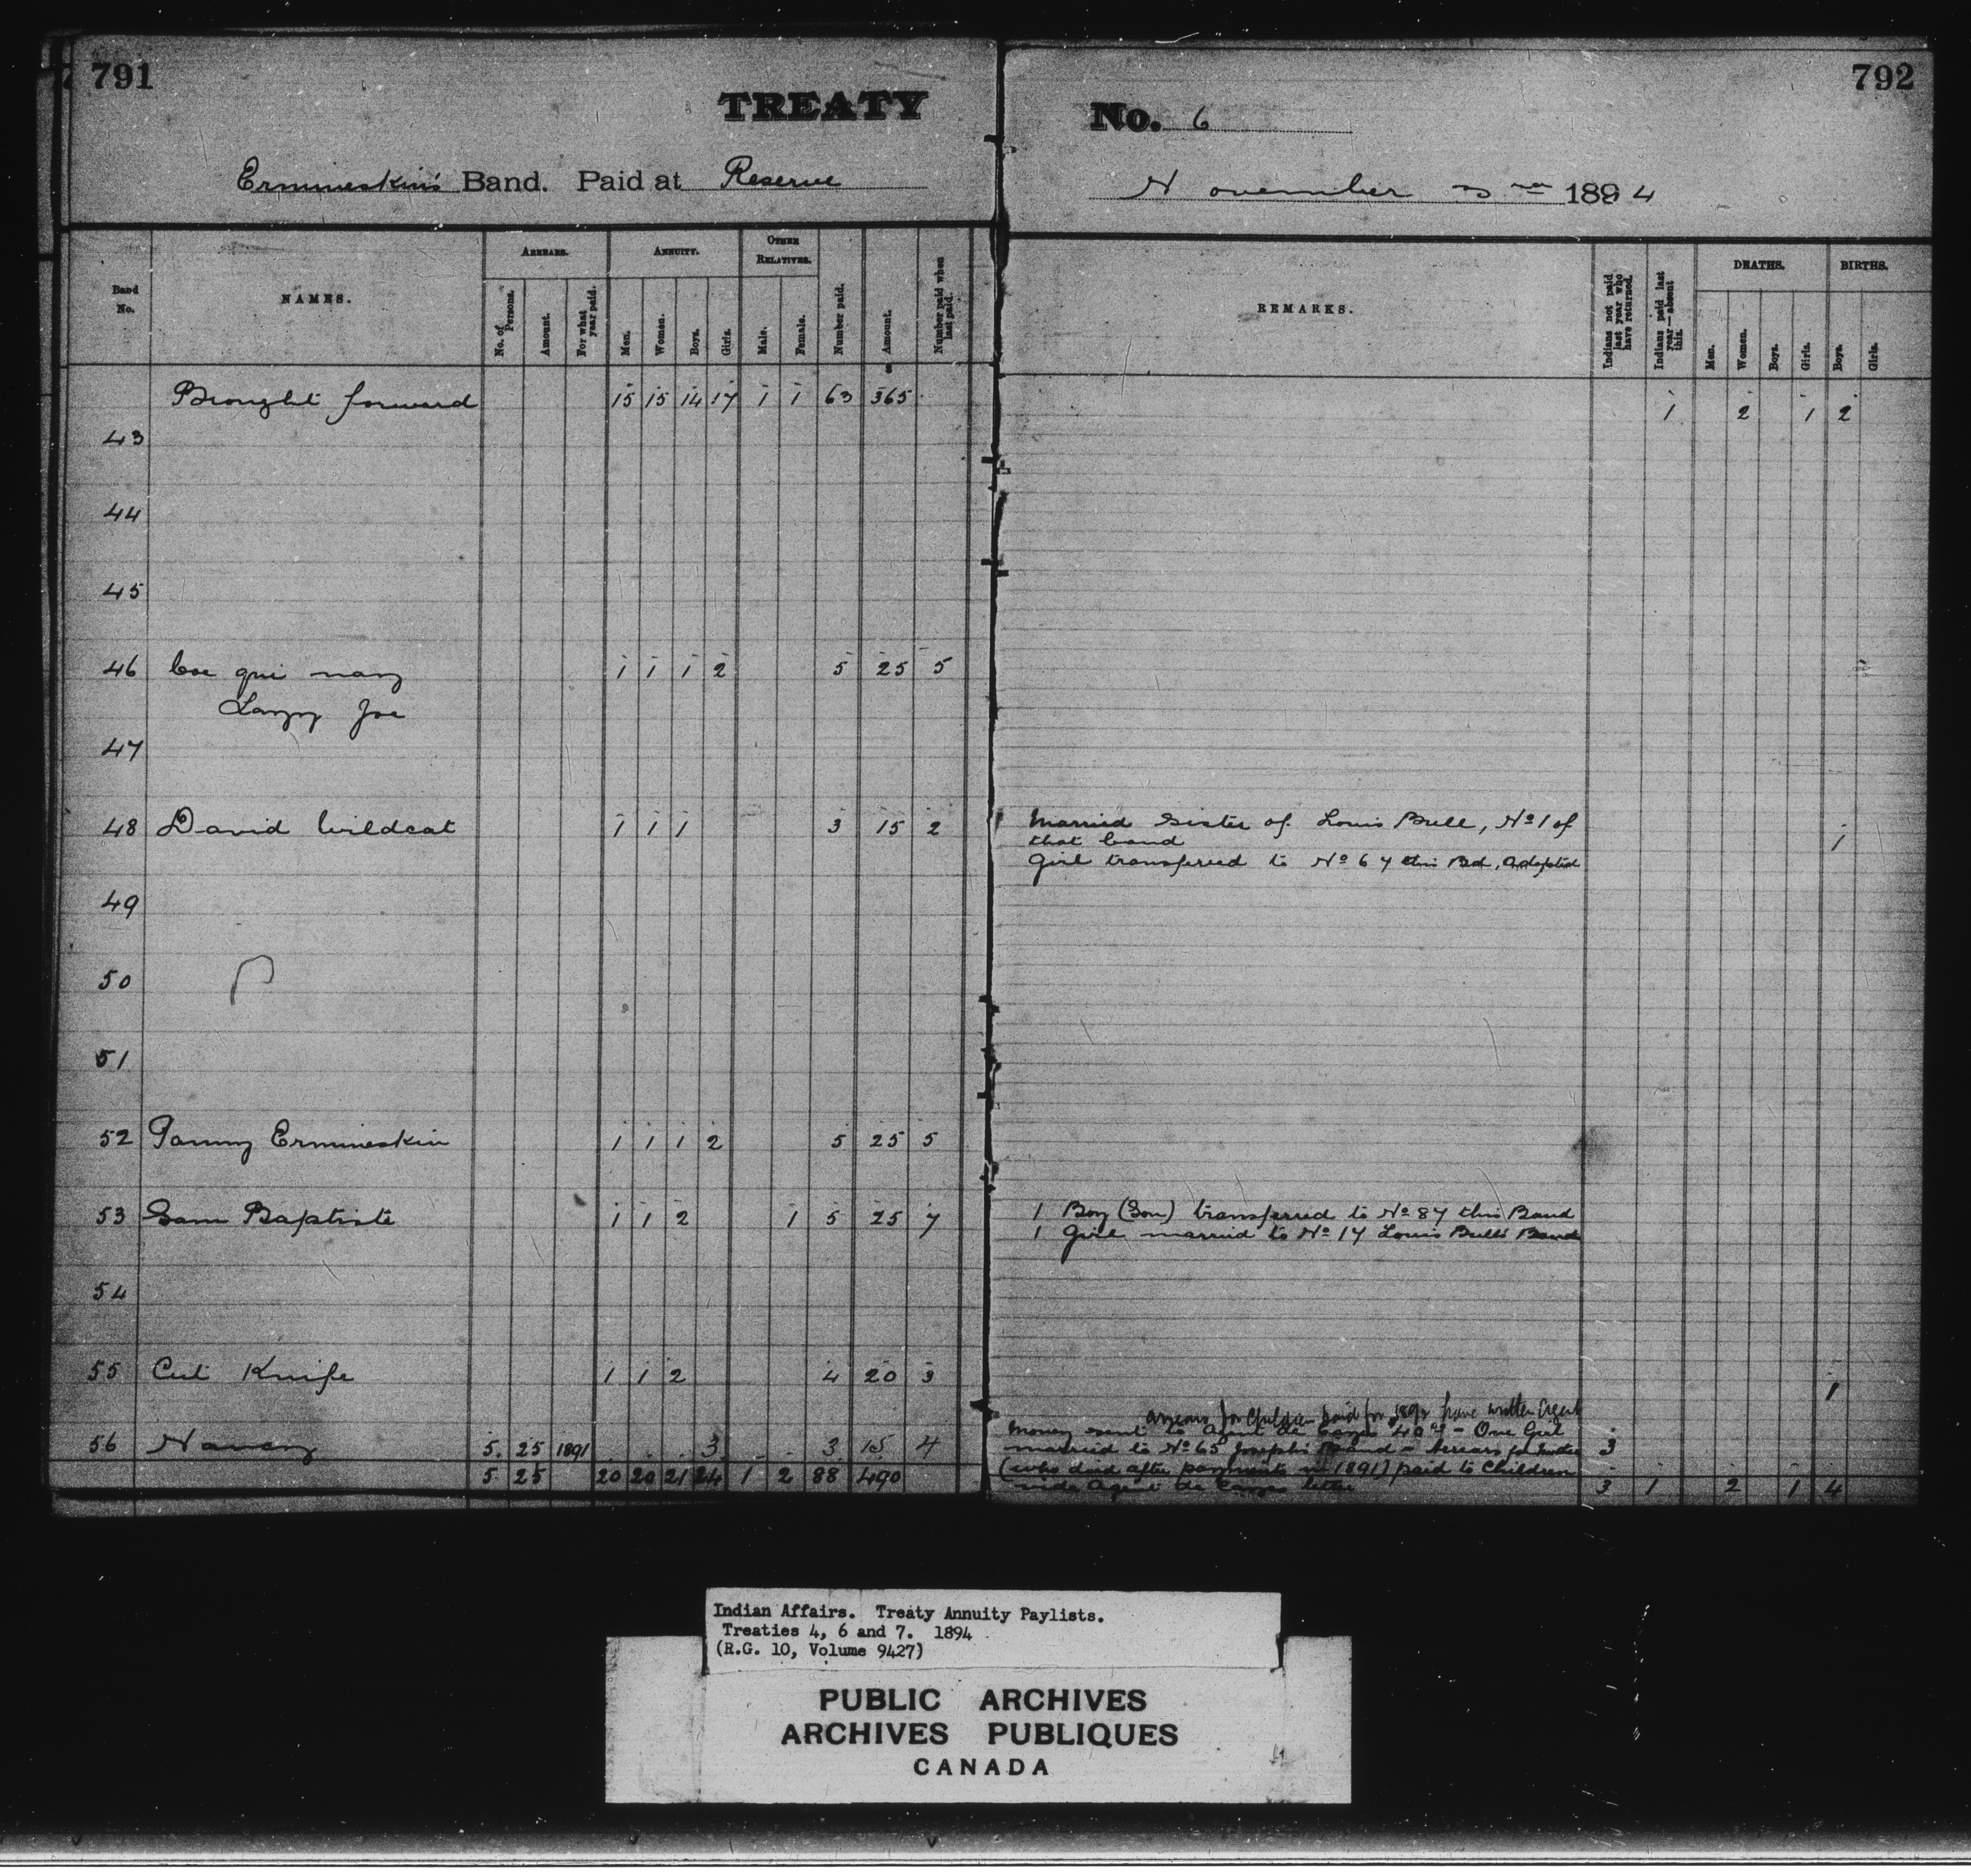 791
TREATY
Ermineskin's Band. Paid at Reserve
Band No.
NAMES.
ARREARS.
No. of Persons.
Amount.
For what year paid.
ANNUITY.
Men.
Women.
Boys.
Girls.
OTHER RELATIVES.
Male.
Female.
Number paid.
Amount.
Number paid when last paid.
Brought forward 15 15 14 17 1 1 63 365
43
44
45
46 1 1 1 2 5 25 5
Lazy Joe
47
48 David Wildcat 1 1 1 3 15 2
49
50
51
52 Tommy Ermineskin 1 1 1 2 5 25 5
53 Sam Baptiste 1 1 2 1 5 25 7
54
55 Cut Knife 1 1 2 4 20 3
56 Nancy 5. 25 1891 3 3 15 4
5 25 20 20 21 24 1 2 88 490
792
No. 6
November 3rd 1894
REMARKS.
Indians not paid last year who have returned.
Indians paid last year—absent this.
DEATHS.
Men.
Women.
Boys.
Girls.
BIRTHS.
Boys.
Girls.
1 2 1 2
Married sister of Louis Bull, No 1 of
that band 1
Girl transferred to No 67 this Bd, Adopted
1 Boy (Son) transferred to No 87 this Band
1 Girl married to No 17 Louis Bull's Band
1
arrears for Children paid for 1892 have written Agent
Money sent to Agent de Cazes - One Girl
married to No 65 Joseph's Band - Arrears for 3
(who died after payments in 1891) paid to Children
vide Agent de Cazes letter 3 1 2 1 4
Indian Affairs. Treaty Annuity Paylists.
Treaties 4, 6 and 7. 1894
(R.G. 10, Volume 9427)
PUBLIC ARCHIVES
ARCHIVES PUBLIQUES
CANADA